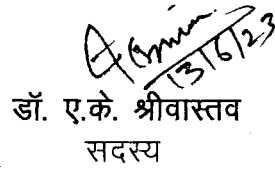 13/6/23
डॉ. ए.के. श्रीवास्तव
सदस्य